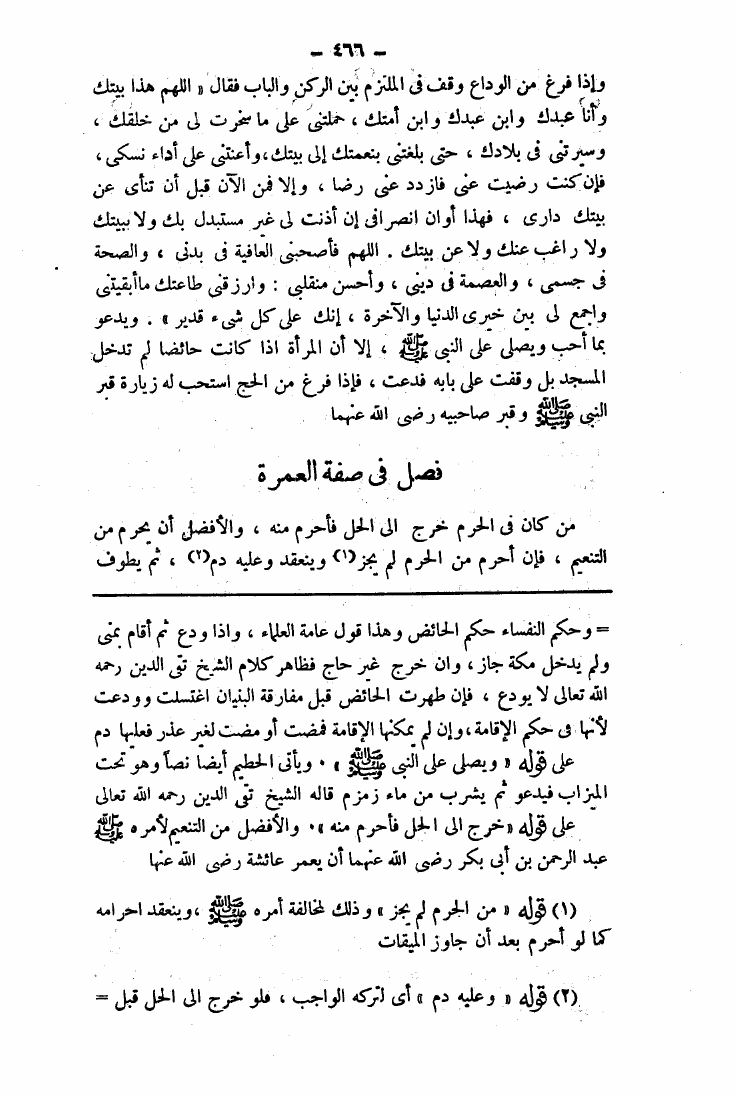 – ٤٦٦ –
وإذا فرغ من الوداع وقف فى الملتزم بين الركن والباب فقال « اللهم هذا بيتك
وأنا عبدك وابن عبدك وابن أمتك ، حملتنى على ما سخرت لى من خلقك ،
وسيرتنى فى بلادك ، حتى بلغتنى بنعمتك إلى بيتك، وأعنتنى على أداء نسكى ،
فإن كنت رضيت عنى فازدد عنى رضا ، وإلا فمن الآن قبل أن تنأى عن
بيتك دارى ، فهذا أوان انصرافى إن أذنت لى غير مستبدل بك ولا ببيتك
ولا راغب عنك ولا عن بيتك . اللهم فأصحبنى العافية فى بدنى ، والصحة
فى جسمى ، والعصمة فى دينى ، وأحسن منقلبى : وارزقنى طاعتك ماأبقيتنى
واجمع لى بين خيرى الدنيا والآخرة ، إنك على كل شىء قدير » . ويدعو
بما أحب ويصلى على النبى ﷺ ، إلا أن المرأة اذا كانت حائضا لم تدخل
المسجد بل وقفت على بابه فدعت ، فإذا فرغ من الحج استحب له زيارة قبر
النبى ﷺ وقبر صاحبيه رضى الله عنهما
فصل فى صفة العمرة
من كان فى الحرم خرج الى الحل فأحرم منه ، والأفضل أن يحرم من
التنعيم ، فإن أحرم من الحرم لم يجز(١) وينعقد وعليه دم(٢) ، ثم يطوف
= وحكم النفساء حكم الحائض وهذا قول عامة العلماء ، واذا ودع ثم أقام بمنى
ولم يدخل مكة جاز ، وان خرج غير حاج فظاهر كلام الشيخ تقى الدين رحمه
الله تعالى لا يودع ، فإن طهرت الحائض قبل مفارقة البنيان اغتسلت وودعت
لأنها فى حكم الإقامة، وإن لم يمكنها الإقامة فمضت أو مضت لغير عذر فعليها دم
على قوله « ويصلى على النبى ﷺ » . ويأتى الحطيم أيضا نصاً وهو تحت
الميزاب فيدعو ثم يشرب من ماء زمزم قاله الشيخ تقى الدين رحمه الله تعالى
على قوله «خرج الى الحل فأحرم منه». والأفضل من التنعيم لأمره ﷺ
عبد الرحمن بن أبى بكر رضى الله عنهما أن يعمر عائشة رضى الله عنها
(١) قوله « من الحرم لم يجز » وذلك لمخالفة أمره ﷺ ، وينعقد احرامه
كما لو أحرم بعد أن جاوز الميقات
(٢) قوله « وعليه دم » أى لتركه الواجب ، فلو خرج الى الحل قبل =